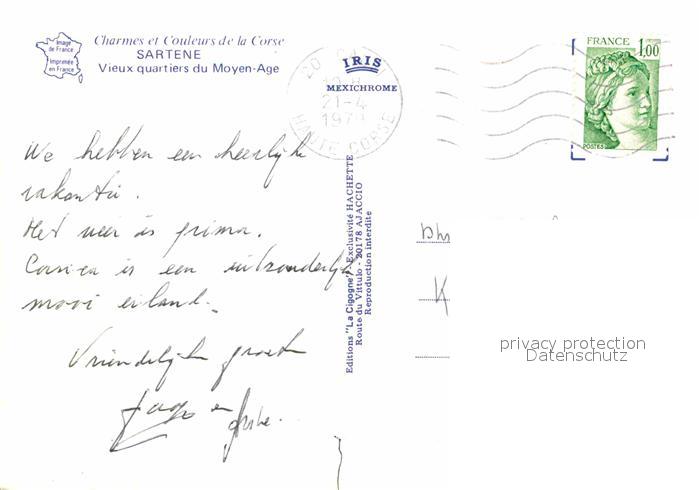 Image
de France
Imprimée
en France
Charmes et Couleurs de la Corse
SARTENE
Vieux quartiers du Moyen-Age
IRIS
MEXICHROME
FRANCE 1,00
POSTES
20
21-4
HAUTE CORSE
We hebben een heerlijke
vakantie.
Het weer is prima.
Corsica is een uitzonderlijk
mooi eiland.
Vriendelijke groeten
en
Editions "La Cigogne" - Exclusivité HACHETTE
Route du Vittulo - 20178 AJACCIO
Reproduction interdite
privacy protection
Datenschutz